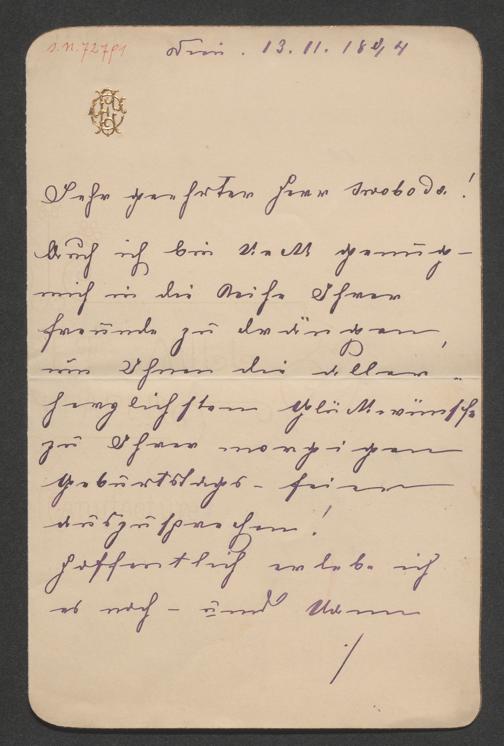 Wien. 13.11.1894
Sehr geehrter Herr Swoboda!
Auch ich bin keck genug –
mich in die Reihe Ihrer
Freunde zu drängen,
um Ihnen die aller-
herzlichsten Glückwünsche
zu Ihrer morgigen
Geburtstags-feier
auszusprechen!
Hoffentlich erlebe ich
es noch – und kann
./